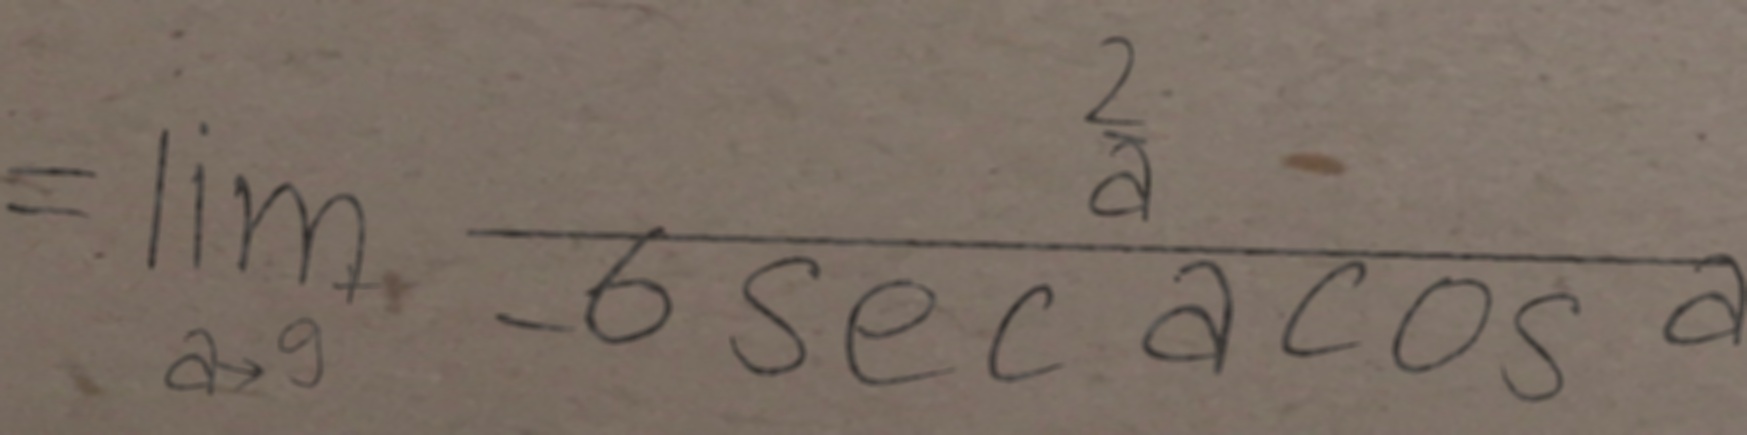 = \lim_{a \to 9^{+}} \frac{\frac{2}{a}}{-6 \sec a \cos a}